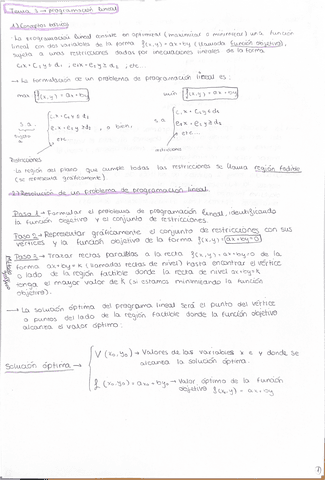 Tema 3 → programación lineal
1) Conceptos básicos
· La programación lineal consiste en optimizar (maximizar o minimizar) una función
lineal con dos variables de la forma f(x,y) = ax+by (llamada función objetivo),
sujeta a unas restricciones dadas por inecuaciones lineales de la forma
c₁x + c₂y ≤ d₁ , e₁x + e₂y ≥ d₂ , etc...
→ La formulación de un problema de programación lineal es:
max f(x,y) = ax+by
min f(x,y) = ax+by
s.a.
c₁x + c₂y ≤ d₁
e₁x + e₂y ≥ d₂
etc...
o bien,
s.a.
c₁x + c₂y ≤ d₁
e₁x + e₂y ≥ d₂
etc...
restricciones
Restricciones
La región del plano que cumple todas las restricciones se llama región factible
(se representa gráficamente)
2) Resolución de un problema de programación lineal
Paso 1 → Formular el problema de programación lineal, identificando
la función objetivo y el conjunto de restricciones.
Paso 2 → Representar gráficamente el conjunto de restricciones con sus
vértices y la función objetivo de la forma f(x,y) = ax+by=0
Paso 3 → Trazar rectas paralelas a la recta f(x,y) = ax+by=0 de la
forma ax+by=K (llamadas rectas de nivel) hasta encontrar el vértice
o lado de la región factible donde la recta de nivel ax+by=K
tenga el mayor valor de K (si estamos minimizando la función
objetivo).
→ La solución óptima del programa lineal será el punto del vértice
o puntos del lado de la región factible donde la función objetivo
alcanza el valor óptimo:
Solución óptima →
V (x₀,y₀) → Valores de las variables x e y donde se
alcanza la solución óptima.
f (x₀,y₀) = ax₀+by₀ → Valor óptimo de la función
objetivo f(x,y) = ax+by